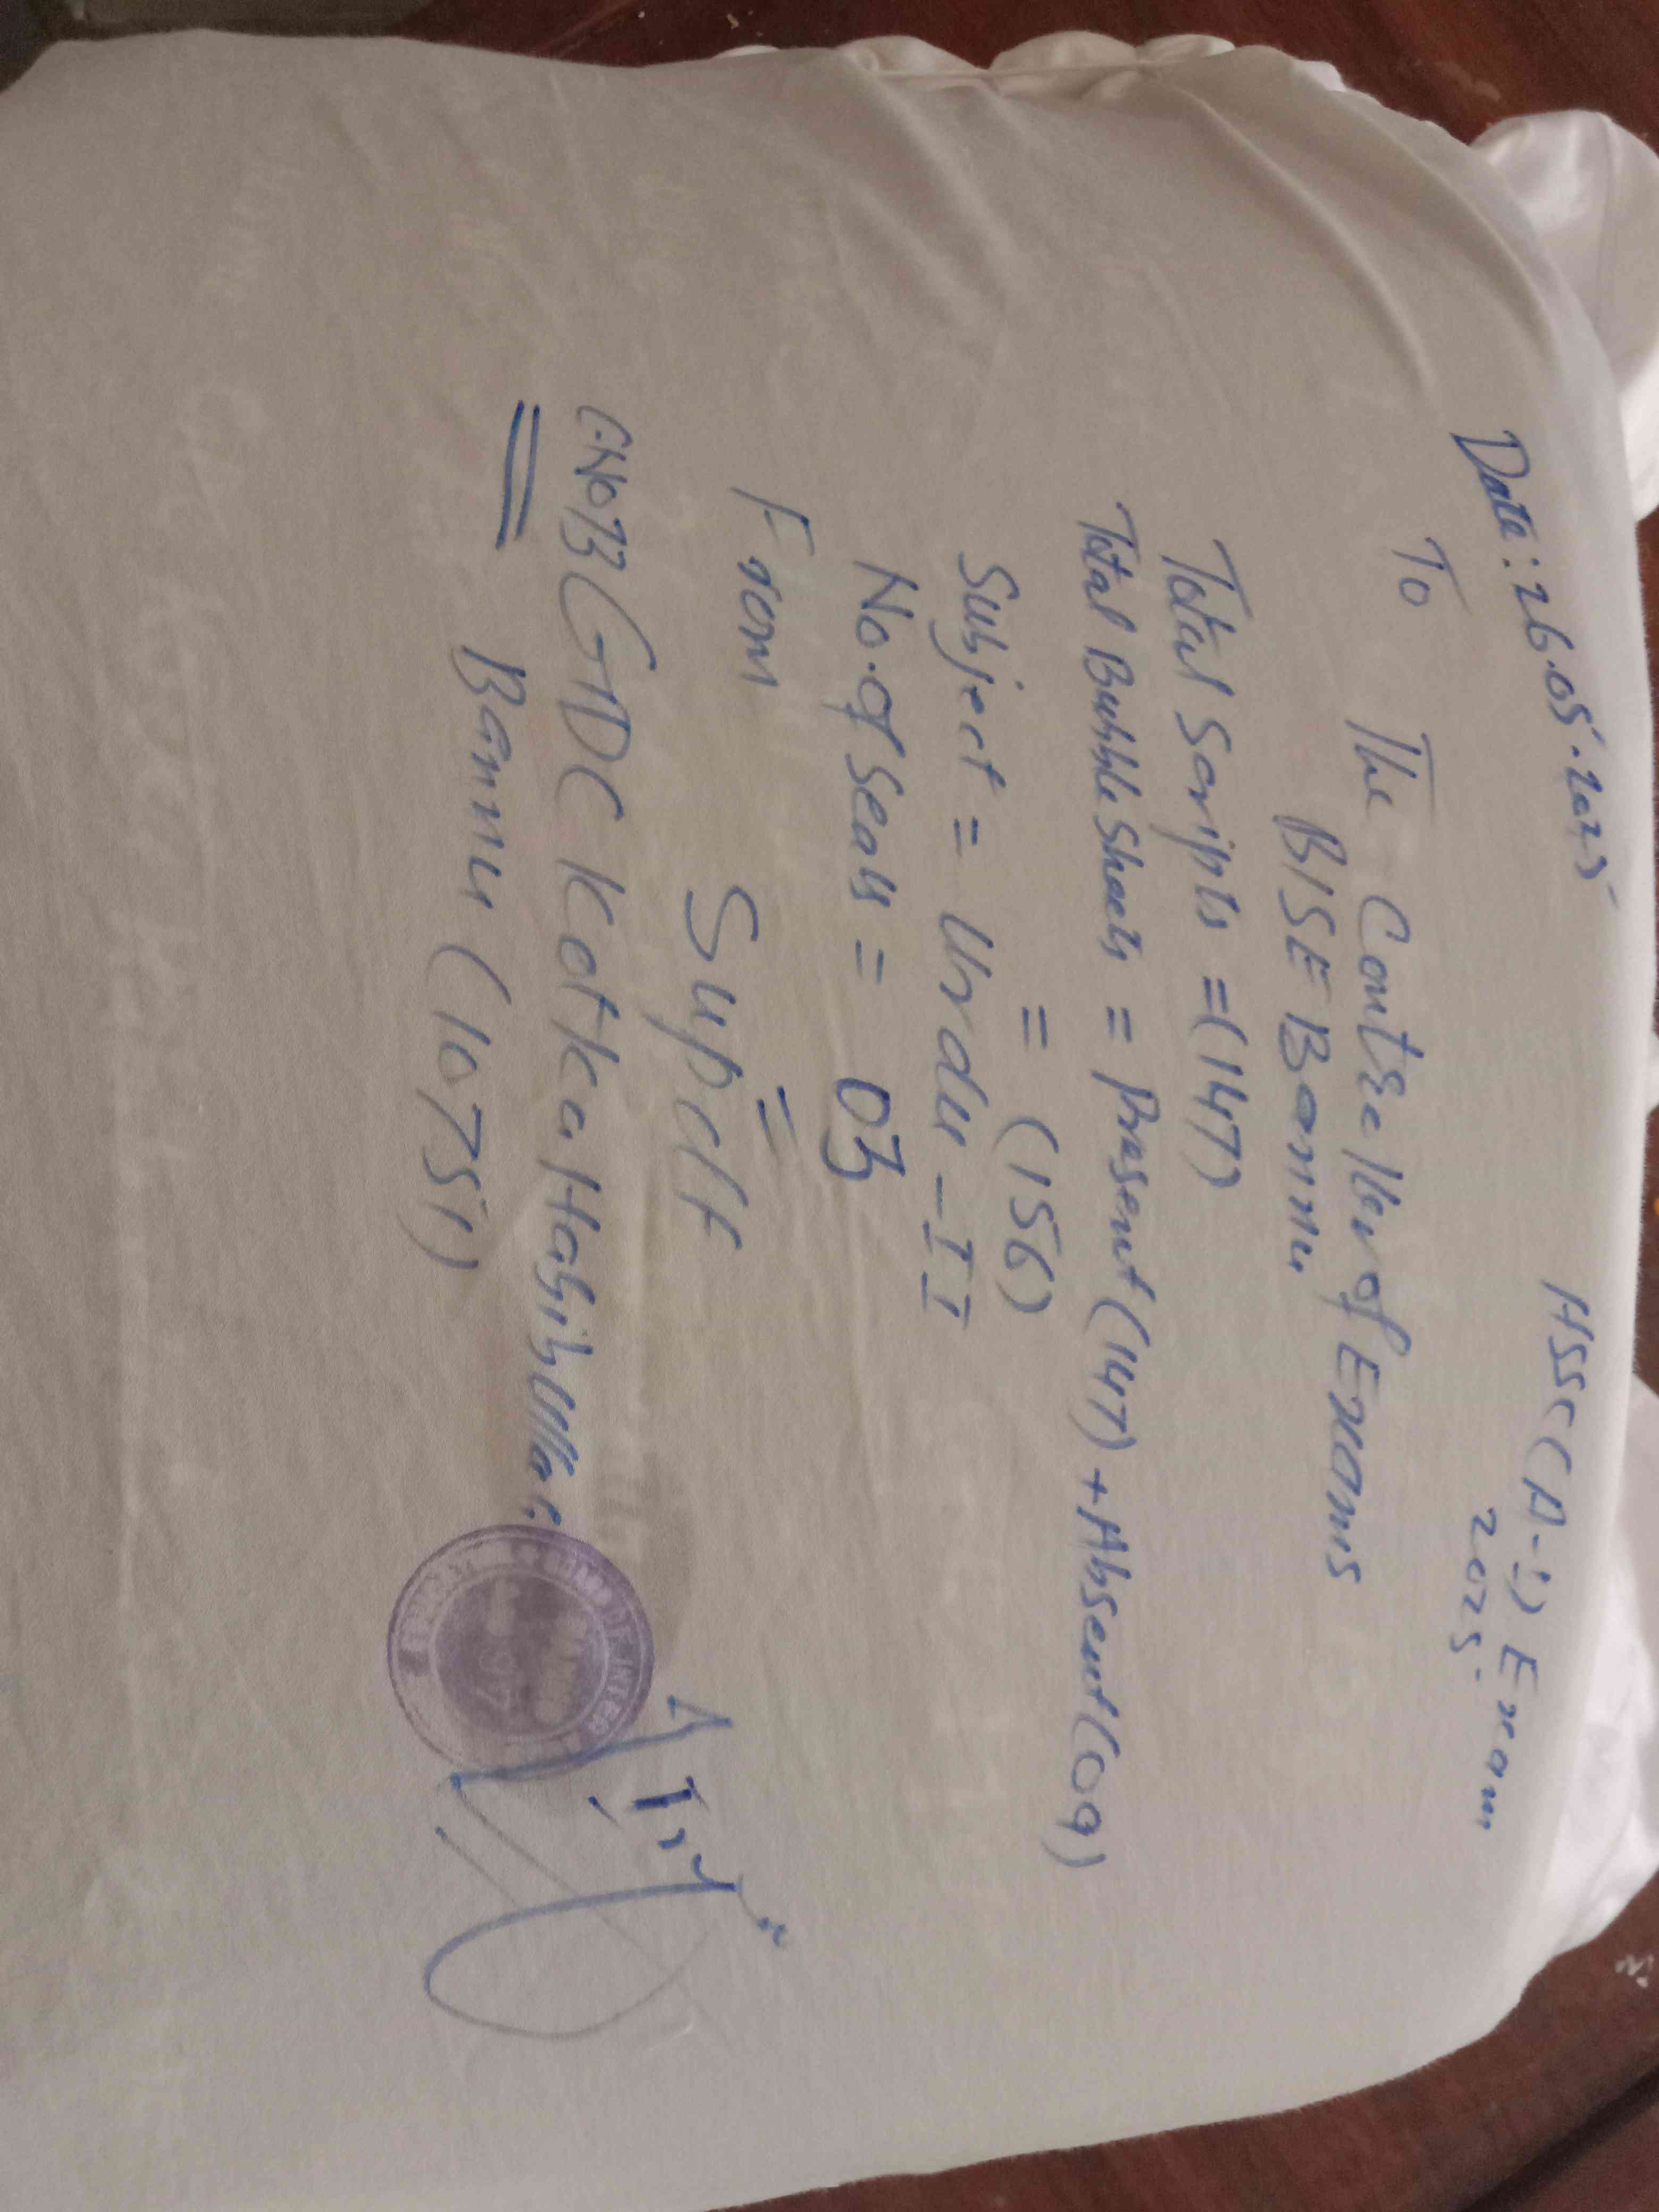 HSSC (A-i) Exam
2025.
Date: 26.05.2025
To The Controller of Exams
BISE Bannu
Total Scripts = (147)
Total Bubble Sheets = Present (147) + Absent (09)
= (156)
Subject = Urdu - II
No. of Seals = 03
From
Supdt
GDC Kotka Habibullah
Bannu (10751)